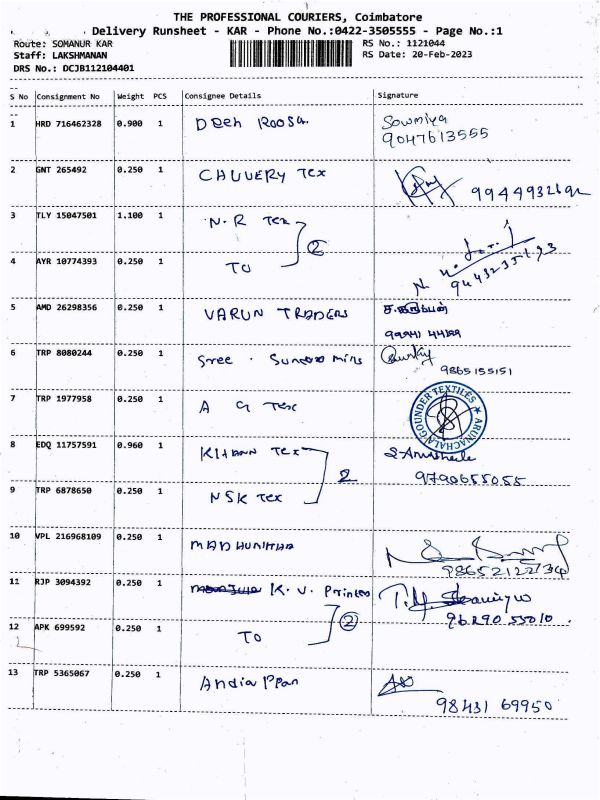 THE PROFESSIONAL COURIERS, Coimbatore
Delivery Runsheet - KAR - Phone No.:0422-3505555 - Page No.:1
Route: SOMANUR KAR RS No.: 1121044
Staff: LAKSHMANAN RS Date: 20-Feb-2023
DRS No.: DCJB112104401
S No Consignment No Weight PCS Consignee Details Signature
1 HRD 716462328 0.900 1 Deen Roosa. Sowmiya
9047613555
2 GNT 265492 0.250 1 CHUVERY Tex
3 TLY 15047501 1.100 1 N.R Tex
2
4 AYR 10774393 0.250 1 TO
5 AMD 26298356 0.250 1 VARUN TRADERS
6 TRP 8080244 0.250 1 Sree . mills
9865155151
7 TRP 1977958 0.250 1 A G Tex
ARUNACHALA GOUNDER TEXTILES
8 EDQ 11757591 0.960 1 Tex
2 9790655055
9 TRP 6878650 0.250 1 NSK Tex
10 VPL 216968109 0.250 1
11 RJP 3094392 0.250 1 K. V. Printers
2 96290 55010.
12 APK 699592 0.250 1 TO
13 TRP 5365067 0.250 1 Andia PPan
98431 69950